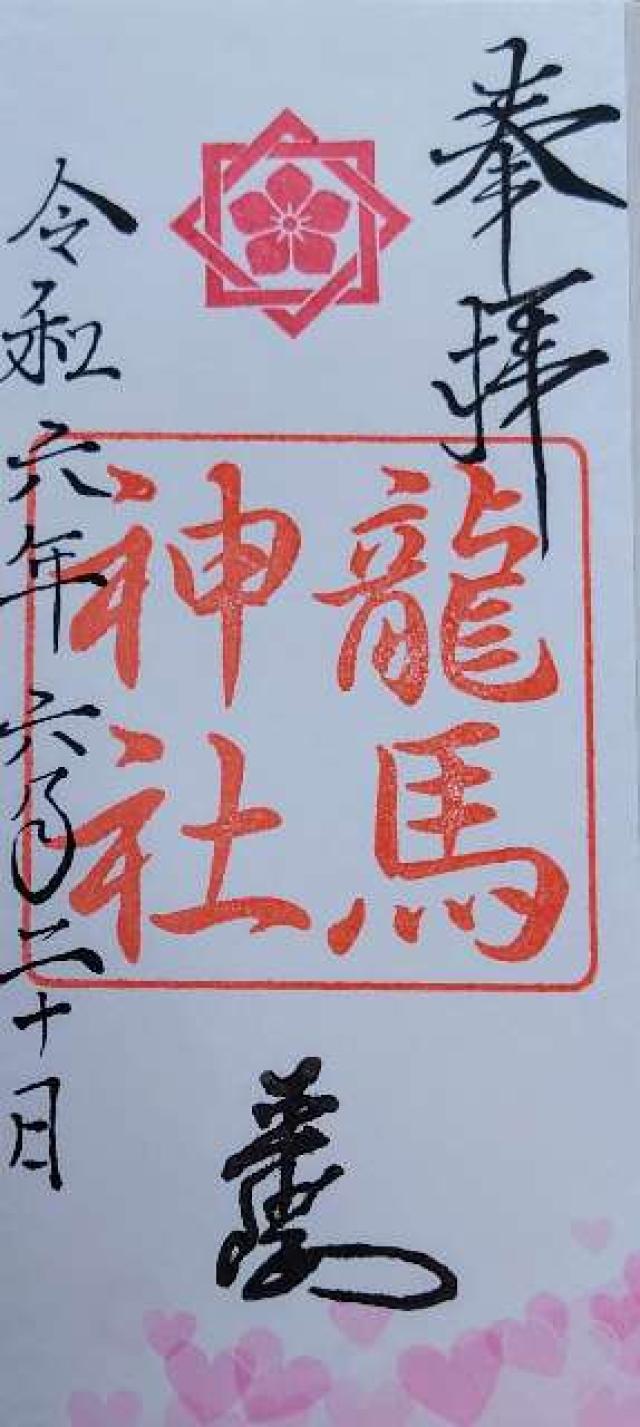 奉拝
龍馬
神社
令和六年六月二十日